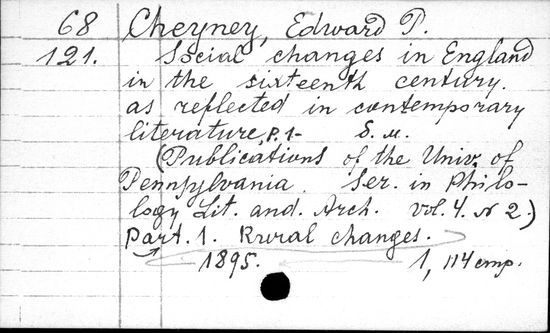 68 Cheyney, Edward P.
121. Social changes in England
in the sixteenth century.
as reflected in contemporary
literature, P. 1- S. M.
(Publications of the Univ. of
Pennsylvania. Ser. in Philo-
logy Lit. and. Arch. vol. 4. N 2.)
Part. 1. Rural changes.
1895. 1, 114 cmp.